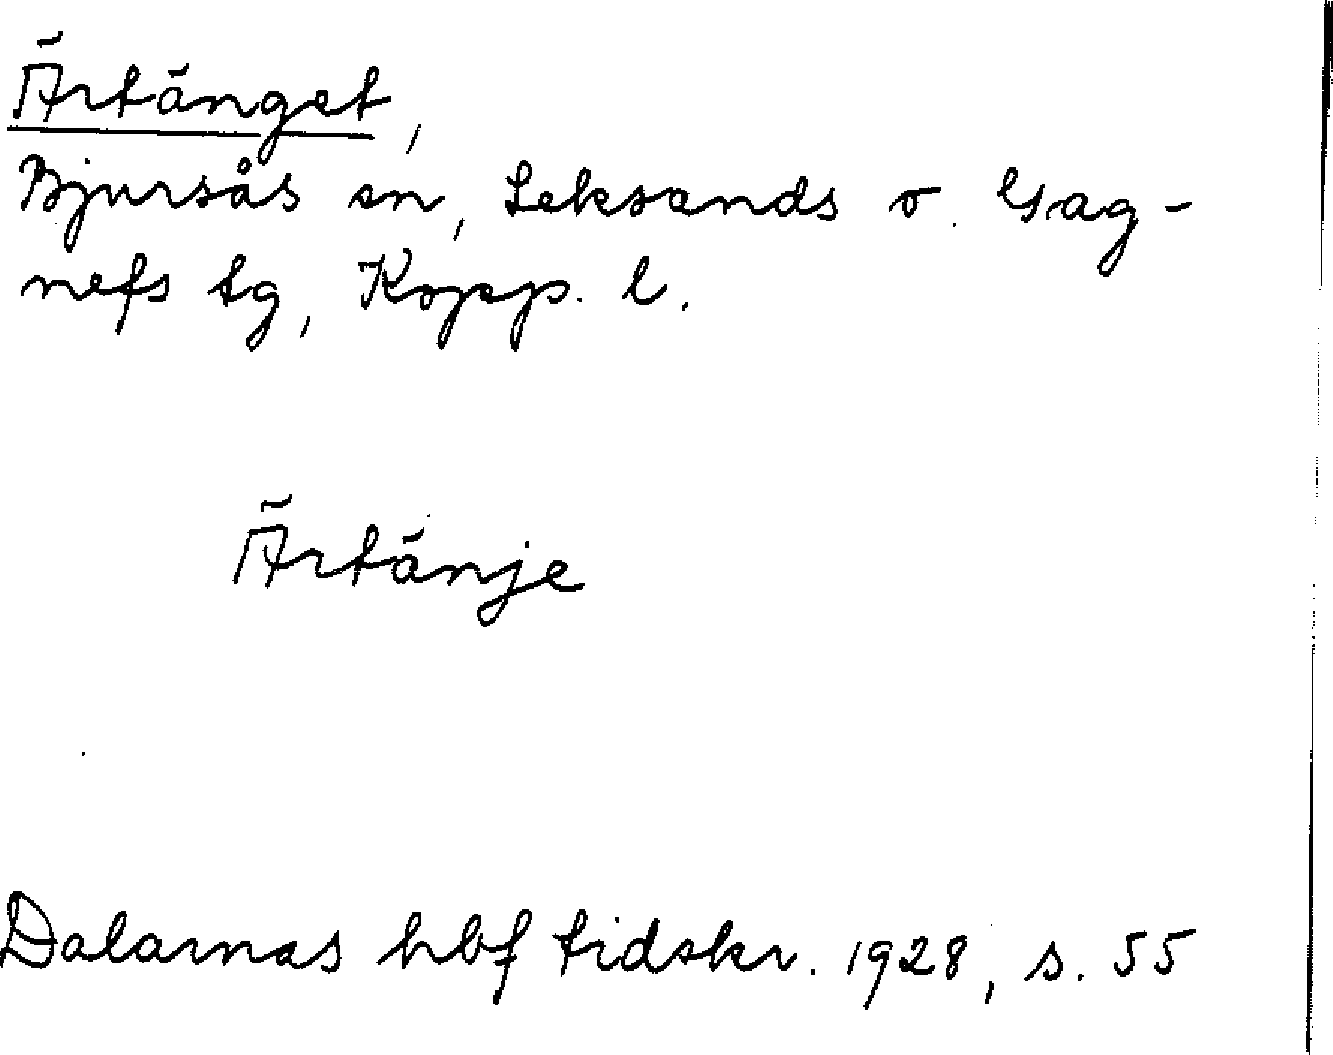 Ärtänget,
Bjursås sn, Leksands o. Gag-
nefs tg, Kopp. l.
Ärtänje
Dalarnas hbf tidskr. 1928, s. 55